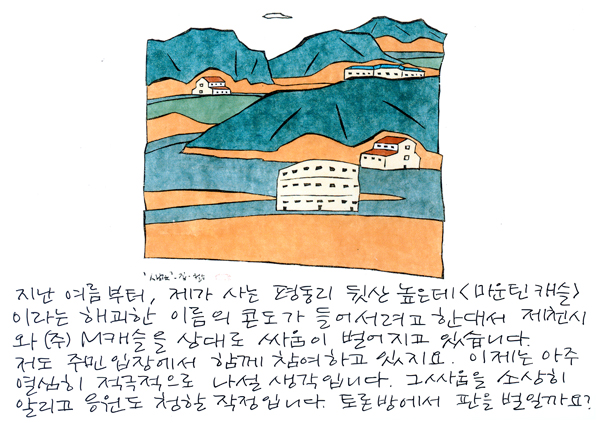 지난 여름부터, 제가 사는 평동리 뒷산 높은데 <마운틴 캐슬>
이라는 해괴한 이름의 콘도가 들어서려고 한대서 제천시
와 (주) M캐슬을 상대로 싸움이 벌어지고 있습니다.
저도 주민 입장에서 함께 참여하고 있지요. 이제는 아주
열심히 적극적으로 나설 생각입니다. 그싸움을 소상히
알리고 응원도 청할 작정입니다. 토론방에서 판을 벌일까요?